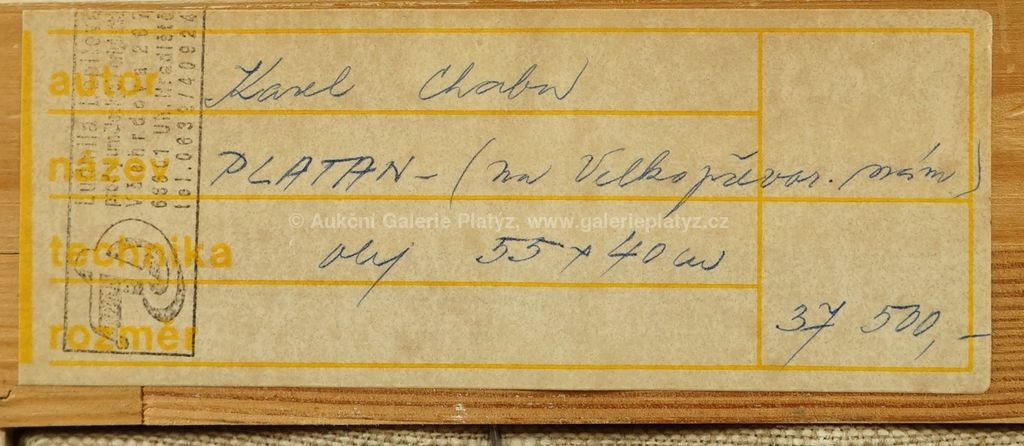 autor Karel Chaba
název PLATAN - (na Velkopřevor. nám)
© Aukční Galerie Platýz, www.galerieplatyz.cz
technika olej 55 x 40 cm
rozměr 37 500,-
Ludmila
Všehrdova 267
68601 Uh. Hradiště
tel. 0632/40924